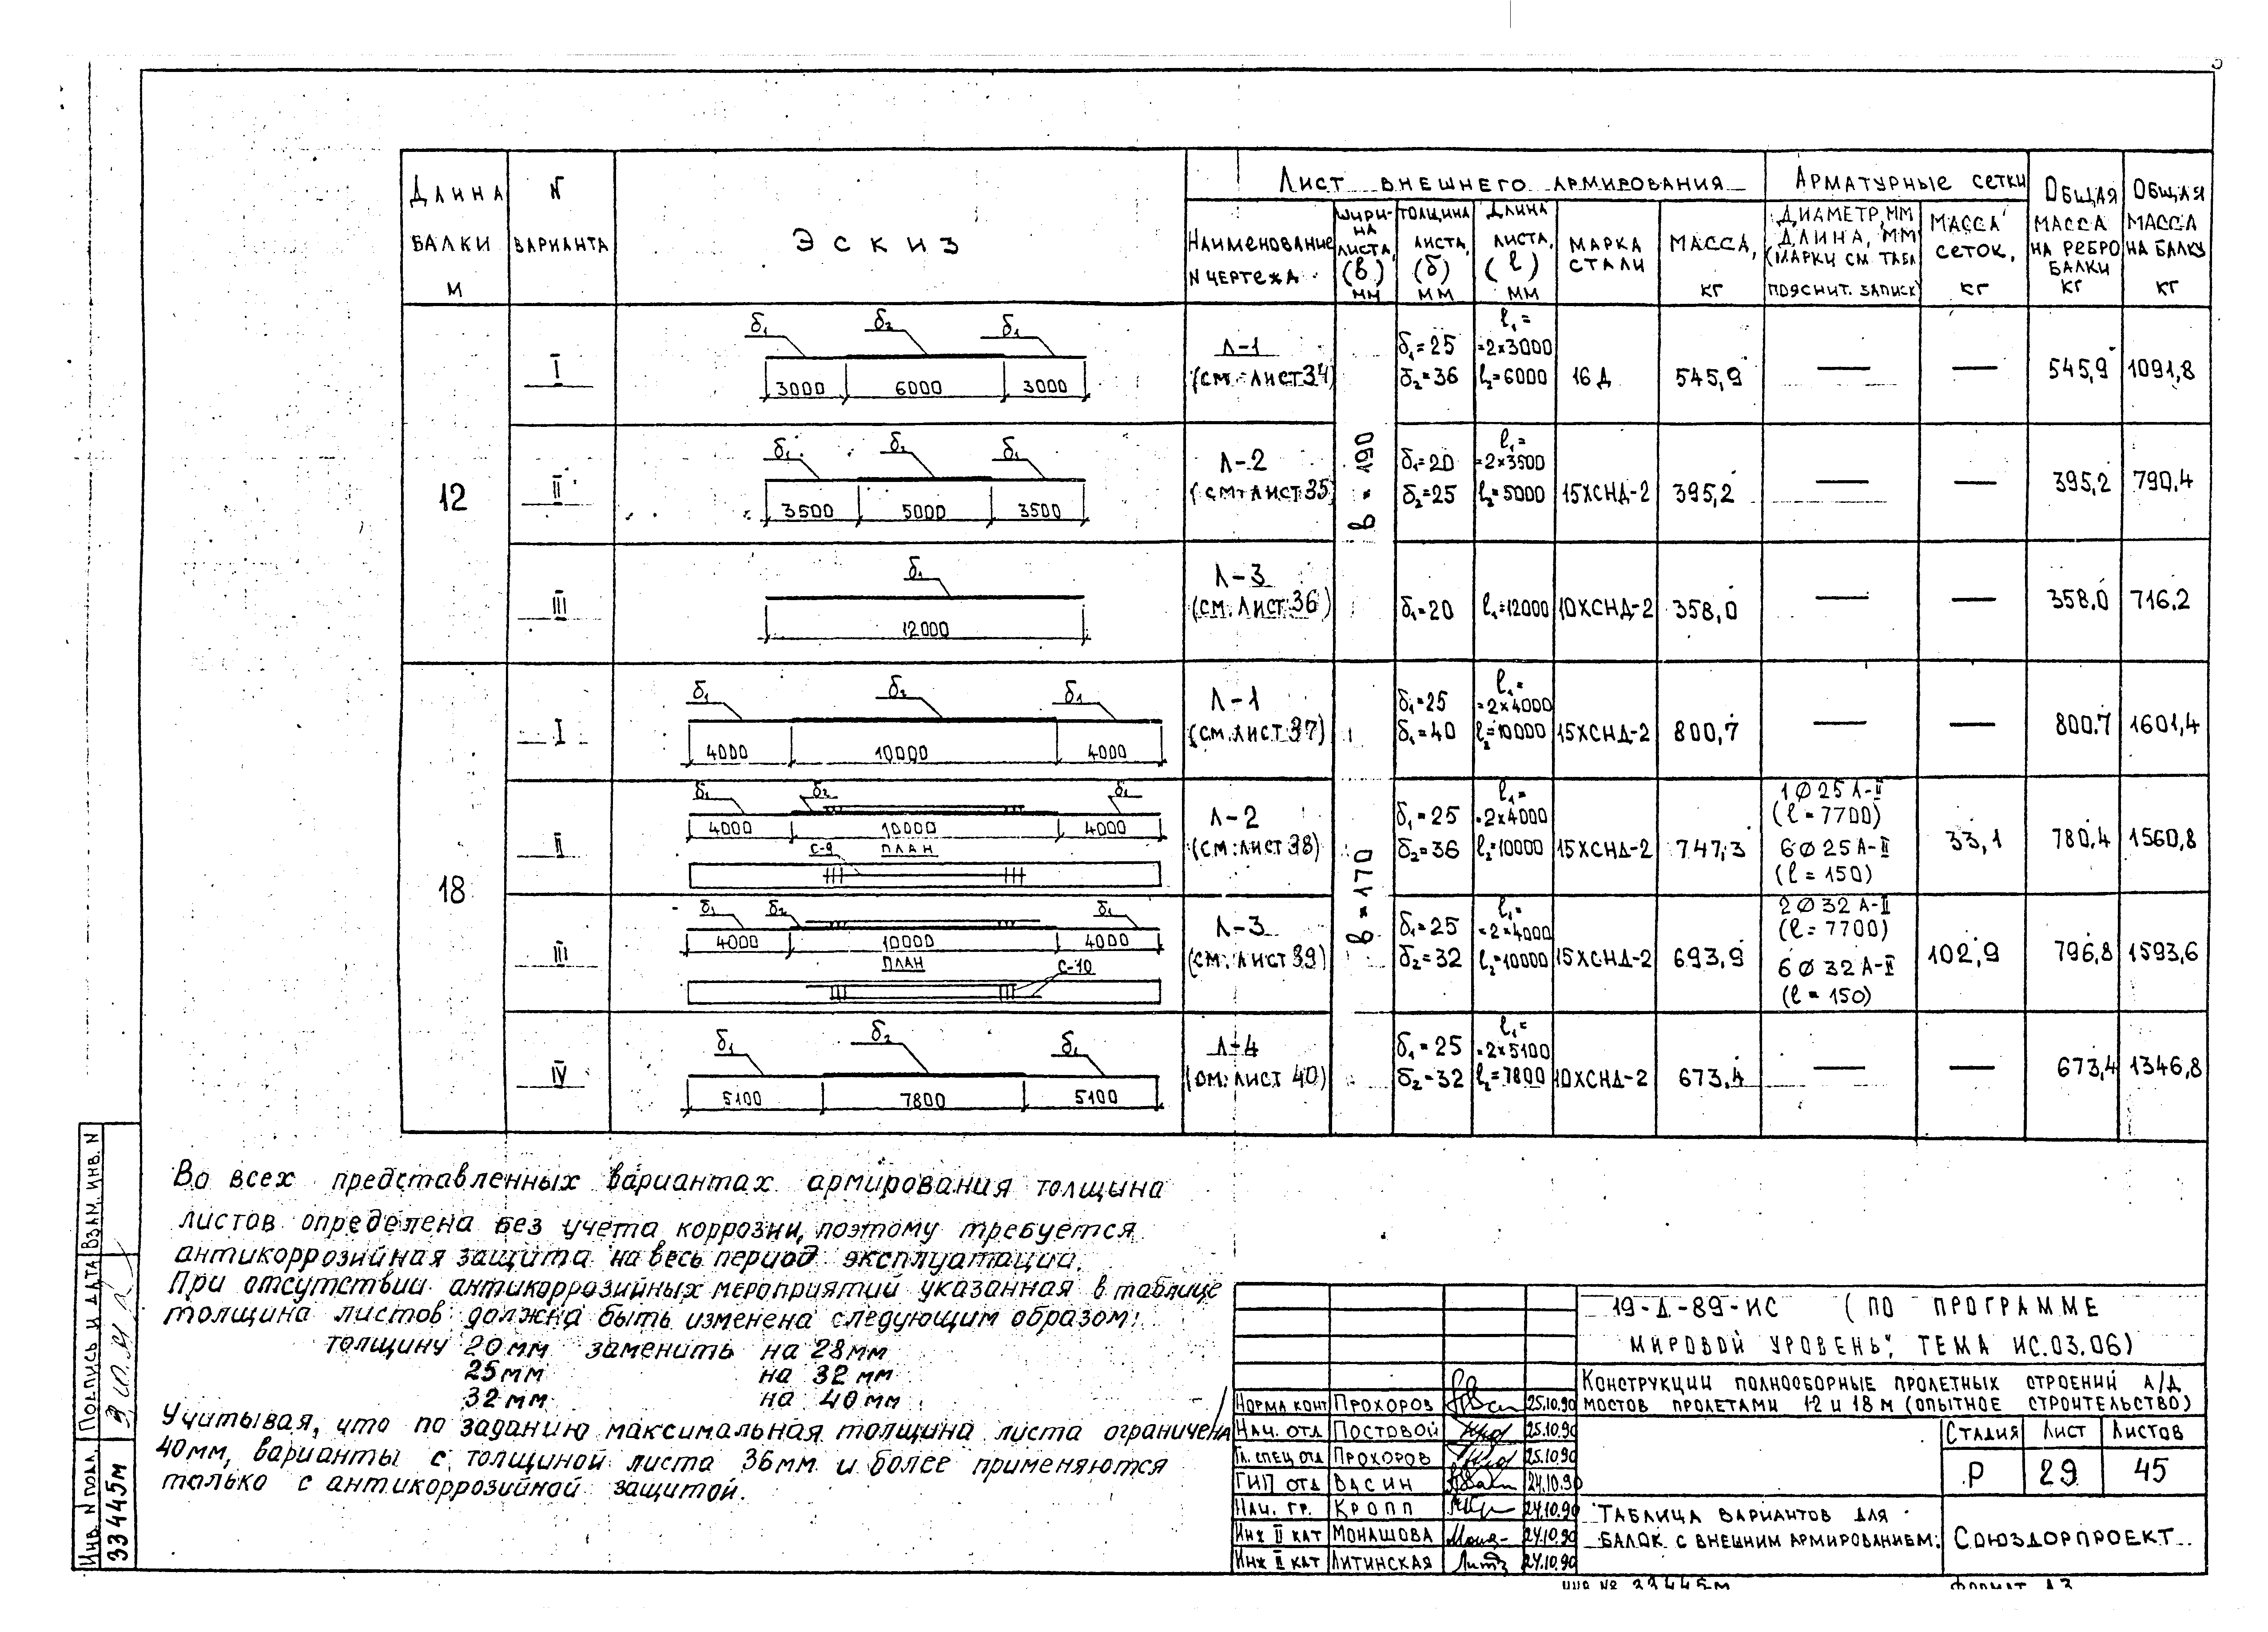 Длина балки м
N варианта
Эскиз
Лист внешнего армирования
Наименование N чертежа
Ширина листа, (в) мм
Толщина листа, (δ) мм
Длина листа, (ℓ) мм
Марка стали
Масса, кг
Арматурные сетки
Диаметр, мм длина, мм (марки см. табл. пояснит. записк)
Масса сеток, кг
Общая масса на ребро балки кг
Общая масса на балку кг
12
I
δ₁ δ₂ δ₁
3000 6000 3000
Л-1
(см. лист 34)
в = 190
δ₁=25
δ₂=36
ℓ₁=
=2×3000
ℓ₂=6000
16Д
545,9
—
—
545,9
1091,8
II
δ₁ δ₂ δ₁
3500 5000 3500
Л-2
(см. лист 35)
δ₁=20
δ₂=25
ℓ₁=
=2×3500
ℓ₂=5000
15ХСНД-2
395,2
—
—
395,2
790,4
III
δ₁
12000
Л-3
(см. лист 36)
δ₁=20
ℓ₁=12000
10ХСНД-2
358,0
—
—
358,0
716,2
18
I
δ₁ δ₂ δ₁
4000 10000 4000
Л-1
(см. лист 37)
в = 170
δ₁=25
δ₁=40
ℓ₁=
=2×4000
ℓ₂=10000
15ХСНД-2
800,7
—
—
800.7
1601,4
II
δ₁ δ₂ δ₁
4000 10000 4000
С-9 ПЛАН
Л-2
(см. лист 38)
δ₁=25
δ₂=36
ℓ₁=
=2×4000
ℓ₂=10000
15ХСНД-2
747,3
1⌀25А-II
(ℓ=7700)
6⌀25А-II
(ℓ=150)
33,1
780,4
1560,8
III
δ₁ δ₂ δ₁
4000 10000 4000
ПЛАН С-10
Л-3
(см. лист 39)
δ₁=25
δ₂=32
ℓ₁=
=2×4000
ℓ₂=10000
15ХСНД-2
693,9
2⌀32А-II
(ℓ=7700)
6⌀32А-II
(ℓ=150)
102,9
796,8
1593,6
IV
δ₁ δ₂ δ₁
5100 7800 5100
Л-4
(см. лист 40)
δ₁=25
δ₂=32
ℓ₁=
=2×5100
ℓ₂=7800
10ХСНД-2
673,4
—
—
673,4
1346,8
Во всех представленных вариантах армирования толщина
листов определена без учета коррозии, поэтому требуется
антикоррозийная защита на весь период эксплуатации.
При отсутствии антикоррозийных мероприятий указанная в таблице
толщина листов должна быть изменена следующим образом:
толщину 20мм заменить на 28мм
25мм на 32мм
32мм на 40мм
Учитывая, что по заданию максимальная толщина листа ограничена
40мм, варианты с толщиной листа 36мм и более применяются
только с антикоррозийной защитой.
Взам. инв. N
Подпись и дата
Инв. N подл.
33445м
19-Д-89-ИС (по программе
мировой уровень", тема ИС.03.06)
Конструкции полносборные пролетных строений а/д
мостов пролетами 12 и 18 м (опытное строительство)
Норма конт Прохоров 25.10.90
Нач. отд Постовой 25.10.90
Гл. спец отд Прохоров 25.10.90
ГИП отд Васин 24.10.90
Нач. гр. Кропп 24.10.90
Инж II кат Монашова 24.10.90
Инж II кат Литинская 24.10.90
Стадия Лист Листов
Р 29 45
Таблица вариантов для
балок с внешним армированием.
Союздорпроект
инв № 33445м
Формат А3